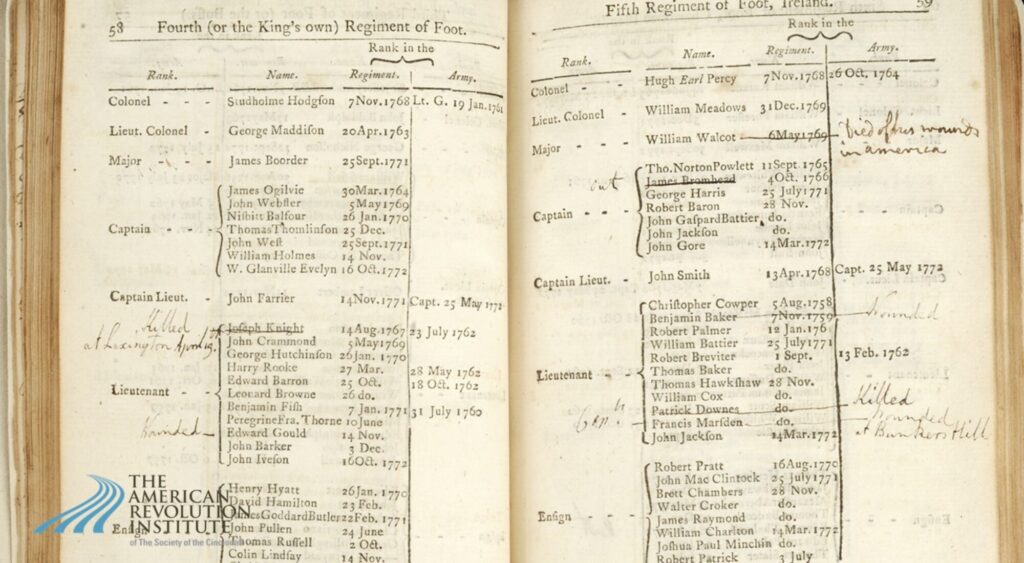 58 Fourth (or the King's own) Regiment of Foot.
Rank in the
Rank. Name. Regiment. Army.
Colonel - - - Studholme Hodgson 7 Nov. 1768 Lt. G. 19 Jan. 1761
Lieut. Colonel - George Maddison 20 Apr. 1763
Major - - - - James Boorder 25 Sept. 1771
James Ogilvie 30 Mar. 1764
John Webster 5 May 1769
Nisbitt Balfour 26 Jan. 1770
Captain - - - Thomas Thomlinson 25 Dec.
John West 25 Sept. 1771
William Holmes 14 Nov.
W. Glanville Evelyn 16 Oct. 1772
Captain Lieut. - John Farrier 14 Nov. 1771 Capt. 25 May 1772
Killed Joseph Knight 14 Aug. 1767 23 July 1762
at Lexington April 19th John Crammond 5 May 1769
George Hutchinson 26 Jan. 1770
Harry Rooke 27 Mar. 28 May 1762
Edward Barron 25 Oct. 18 Oct. 1762
Lieutenant - - Leonard Browne 26 do.
Benjamin Fish 7 Jan. 1771 31 July 1760
Peregrine Fra. Thorne 10 June
Wounded Edward Gould 14 Nov.
John Barker 3 Dec.
John Iveson 16 Oct. 1772
Henry Hyatt 26 Jan. 1770
David Hamilton 23 Feb.
Goddard Butler 22 Feb. 1771
Ensign John Pullen 24 June
Thomas Russell 2 Oct.
Colin Lindsay 14 Nov.
THE
AMERICAN
REVOLUTION
INSTITUTE
of The Society of the Cincinnati
Fifth Regiment of Foot, Ireland. 59
Rank in the
Rank. Name. Regiment. Army.
Colonel - - - Hugh Earl Percy 7 Nov. 1768 26 Oct. 1764
Lieut. Colonel - William Meadows 31 Dec. 1769
Major - - - William Walcot 6 May 1769 Died of his wounds
in america
Tho. Norton Powlett 11 Sept. 1765
out James Bromhead 4 Oct. 1766
George Harris 25 July 1771
Captain - - - Robert Baron 28 Nov.
John Gaspard Battier, do.
John Jackson do.
John Gore 14 Mar. 1772
Captain Lieut. - John Smith 13 Apr. 1768 Capt. 25 May 1772
Christopher Cowper 5 Aug. 1758
Benjamin Baker 7 Nov. 1759 Wounded
Robert Palmer 12 Jan. 176
William Battier 25 July 1771
Robert Breviter 1 Sept. 13 Feb. 1762
Lieutenant - - Thomas Baker do.
Thomas Hawkshaw 28 Nov.
William Cox do.
Patrick Downes do. Killed
Francis Marsden do. Wounded
John Jackson 14 Mar. 1772 at Bunkers Hill
Robert Pratt 16 Aug. 1770
John Mac Clintock 25 July 1771
Brett Chambers 28 Nov.
Walter Croker do.
Ensign - - James Raymond do.
William Charlton 14 Mar. 1772
Joshua Paul Minchin do.
Robert Patrick 3 July